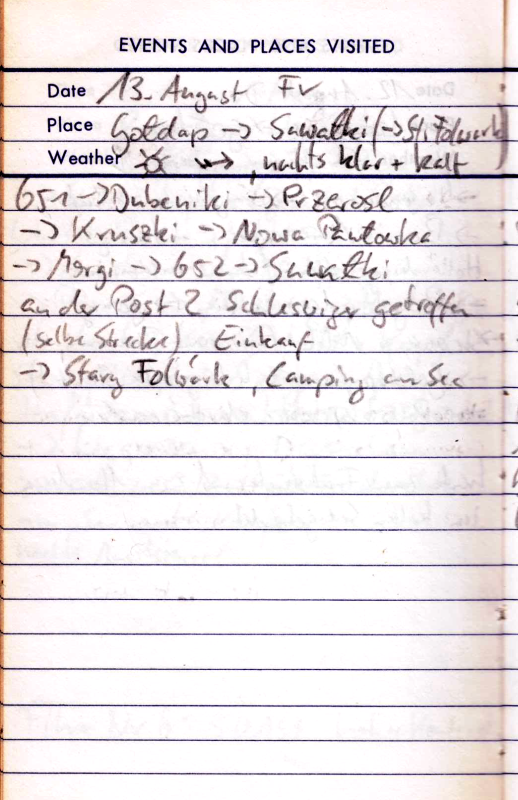 EVENTS AND PLACES VISITED
Date 13. August Fr
Place Gołdap -> Suwałki (-> St. Folwark)
Weather ☼ , nachts klar + kalt
651 -> Dubeniki -> Przerosl
-> Kruszki -> Nowa Pawłowska
-> Morgi -> 652 -> Suwałki
an der Post 2 Schleswiger getroffen
(selbe Strecke) Einkauf
-> Stary Folwark, Camping am See